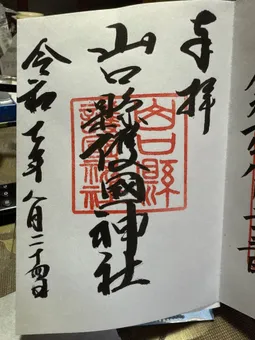 奉拝
山口縣護國神社
山口縣
護國神社
令和 七年 八月二十四日